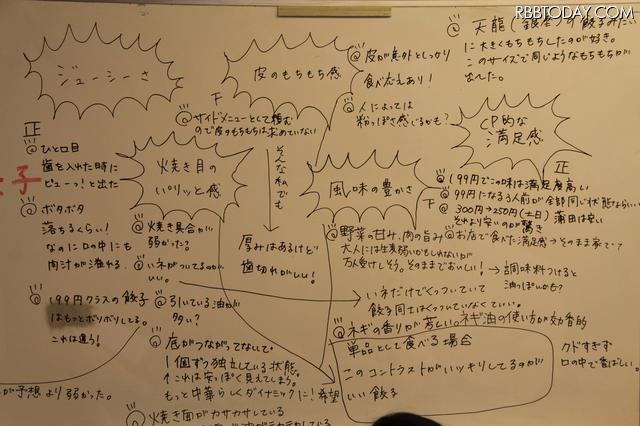 RBBTODAY.COM
ジューシーさ
皮のもちもち感
@皮が意外としっかり
食べ応えあり！
@人によっては
粉っぽさ感じるかも？
@天龍(銀座)の餃子みたい
に大きくもちもちしたのが好き。
このサイズで同じようなもちもちが
出てた。
下
@サイドメニューとして頼む
ので皮のもちもちは求めていない
そんな私でも
厚みはあるけど
歯切れがいい！
CP的な
満足感
正
@ひと口目
歯を入れた時に
ピューっ！と出た
子
@ボタボタ
落ちるくらい！
なのに口の中にも
肉汁が溢れる。
@199円クラスの餃子
はもっとボソボソしてる。
これは違う！
が予想より弱かった。
焼き目の
パリッと感
@焼き具合が
弱かった？
@いネがついてるのが
いい。
@引いている油が
多い？
@底がつながってないで、
1個ずつ独立している状態
↑これは安っぽく見えてしまう。
もっと中華らしくダイナミックに！希望
@焼き面がカサカサしている
風味の豊かさ
@野菜の甘み、肉の旨み
大人には生姜弱いかもしれないが
万人受けしそう。そのままでおいしい！→調味料つけると
油っぽいかも？
いネだけでくっついていて
餃子同士はくっついていなくていい。
@ネギの香りが芳しい。ネギ油の使い方が効果的
単品として食べる場合
このコントラストがハッキリしてるのが
いい餃子
クドすぎず
口の中で香ばしい。
正
@199円でこの味は満足度高い
下
@99円になる3人前が全部同じ状態ならいい
@300円→250円(土日)蒲田は安い
それより安いのが驚き
@お店で食べた満足感→そのまま家で・?